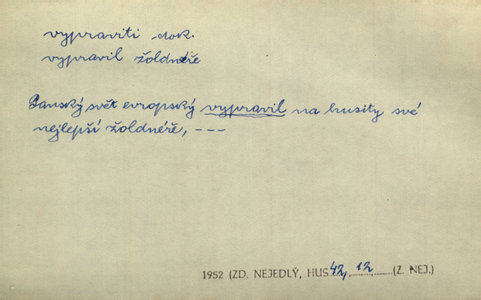 vypraviti dok.
vypravil žoldnéře
Panský svět evropský vypravil na husity své
nejlepší žoldnéře, ---
1952 (ZD. NEJEDLÝ, HUS 42, 12 (Z. NEJ.)